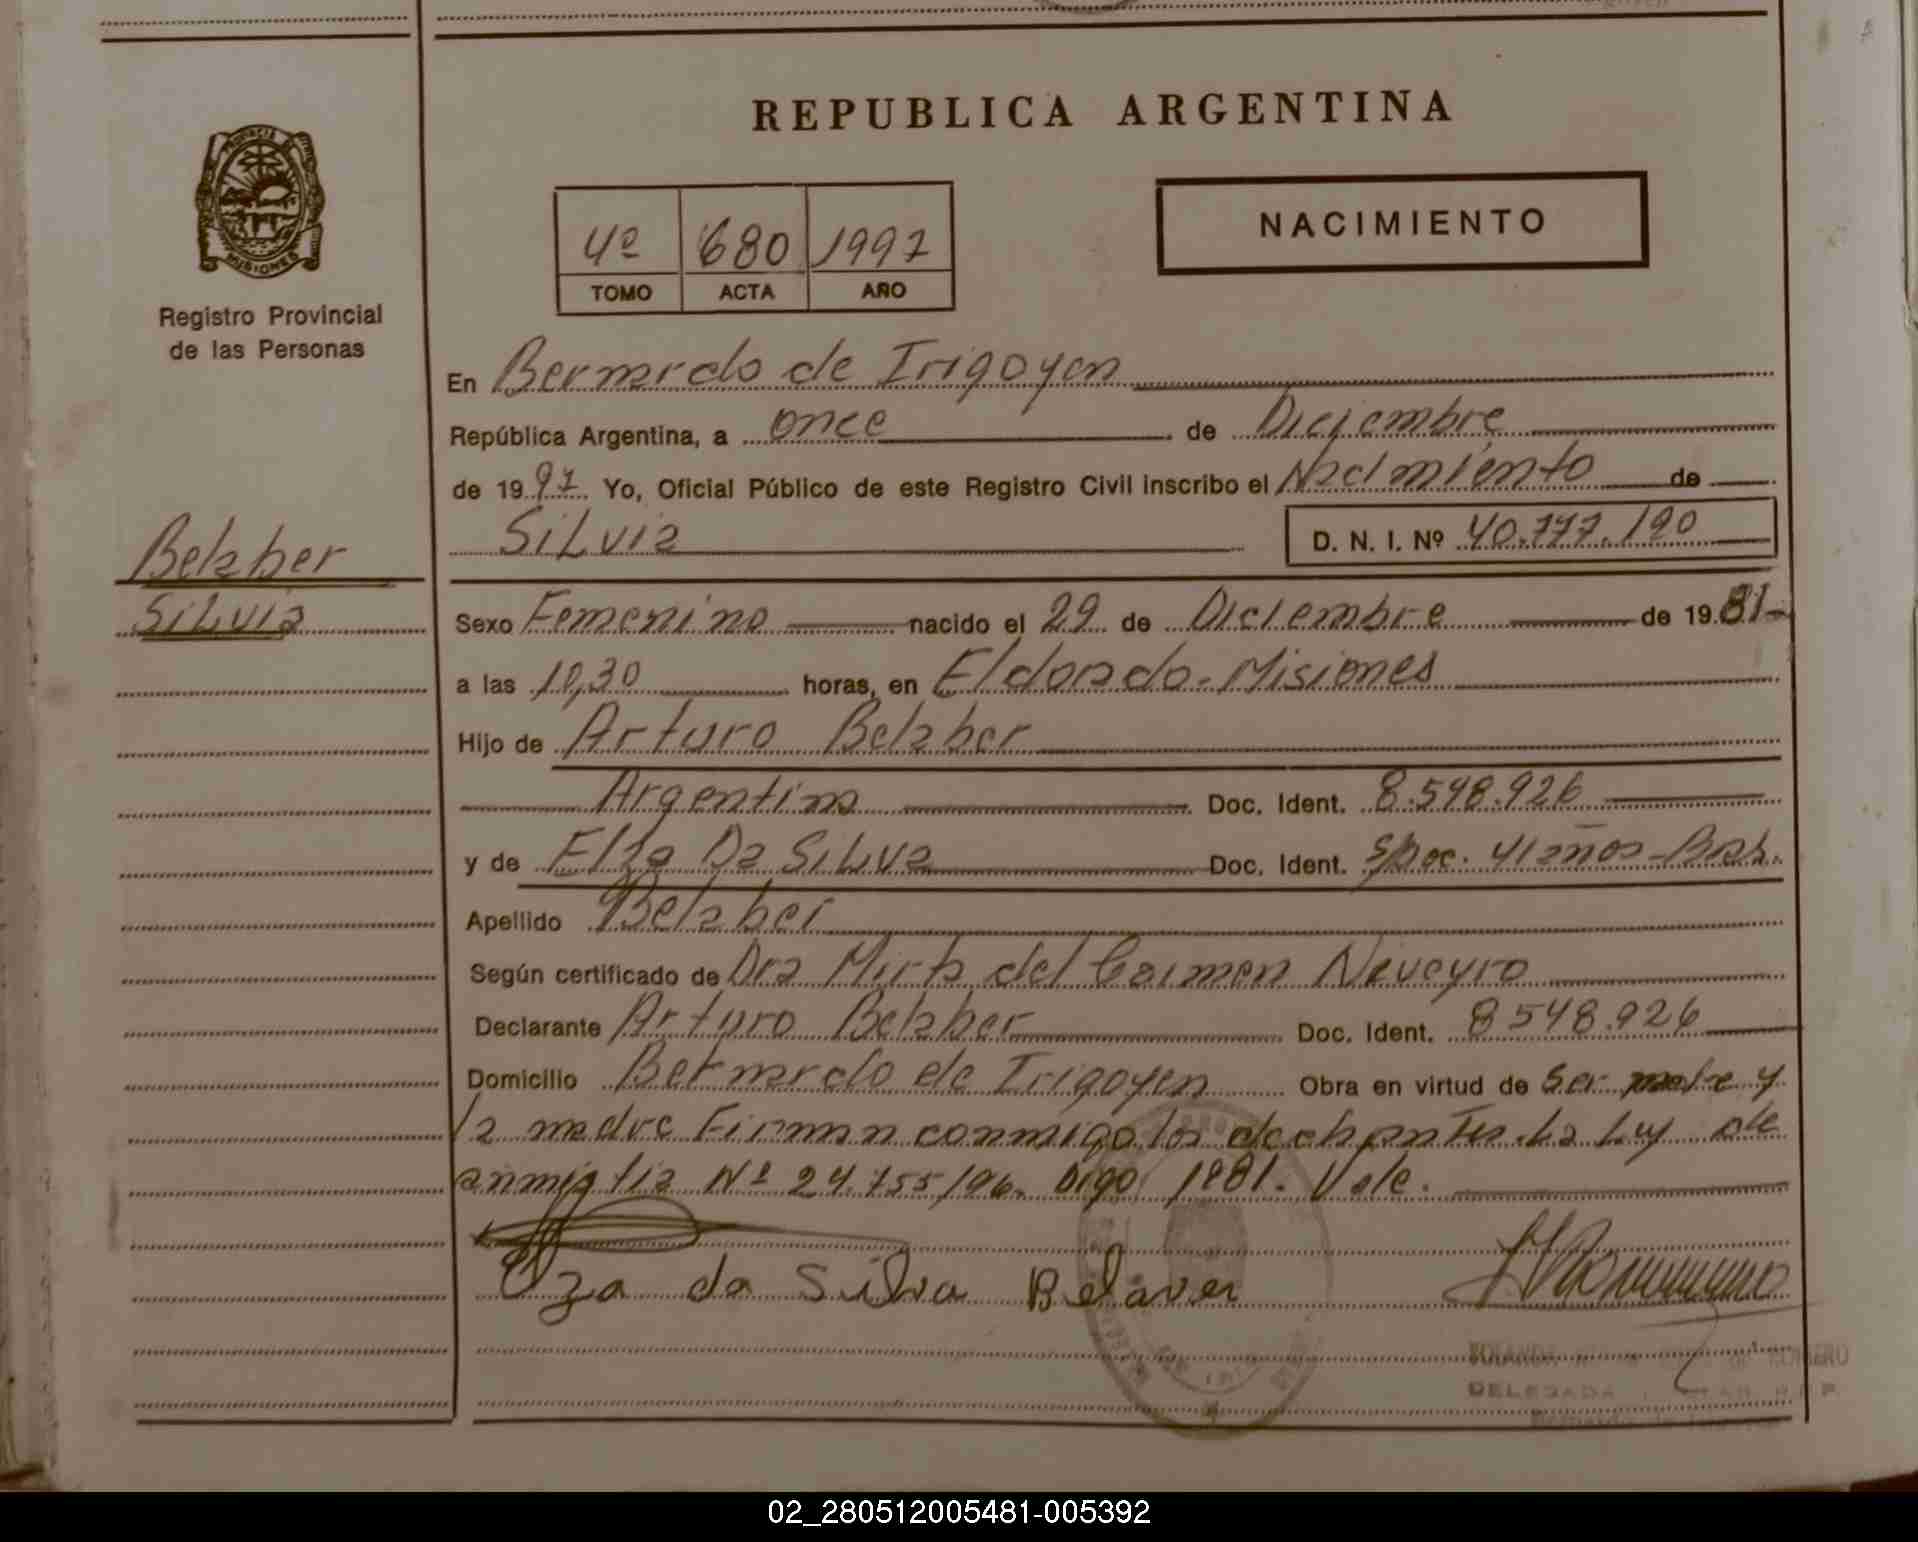 REPUBLICA ARGENTINA
PROVINCIA DE MISIONES
Registro Provincial
de las Personas
4º 680 1997
TOMO ACTA AÑO
NACIMIENTO
En Bernardo de Irigoyen
República Argentina, a once de Diciembre
de 1997 Yo, Oficial Público de este Registro Civil inscribo el Nacimiento de
Silvia D. N. I. Nº 40.777.190
Belaber
Silvia
Sexo Femenino nacido el 29 de Diciembre de 1981
a las 10,30 horas, en Eldorado - Misiones
Hijo de Arturo Belaber
Argentino Doc. Ident. 8.548.926
y de Elza Da Silva Doc. Ident. S/Doc. 41 años - Bras.
Apellido Belaber
Según certificado de Dra Mirta del Carmen Neveyro
Declarante Arturo Belaber Doc. Ident. 8548.926
Domicilio Bernardo de Irigoyen Obra en virtud de ser padre y
la madre Firman conmigo los declarantes. La Ley de
anmistia Nº 24.755/96. Digo 1981. Vale.
Oza da Silva Belaver
DELEGADA R.P.P.
02_280512005481-005392